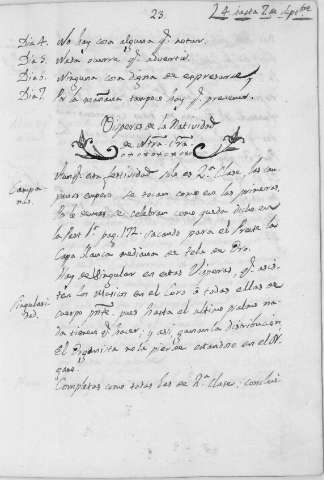 23. 4. hasta 7. de Septbre
Dia 4. No hay cosa alguna q. notar.
Dia 5. Nada ocurre q. advertir.
Dia 6. Ninguna cosa digna de expresarse,
Dia 7. Por la mañana tampoco hay q. prevenir.
Visperas de la Natividad
de Ntra. Sra.
Campanas.
Aunq. esta festividad sola es 2.ª Clase, las campanas empero se tocan como en las primeras.
Por lo demas se celebran como queda dicho en
la pag. 172: sacando para el Preste la
Capa blanca mediana de tela de Oro.
Singularidad.
Hay de singular en estas Visperas, q. asisten los Musicos en el Coro à todas ellas de
cuerpo pnte. pues hasta el ultimo psalmo nada tienen q. hacer; y asi ganan la distribucion,
El Organista no la pierde estando en el Organo.
Completas como todas las de 2.ª Clase: conclui-